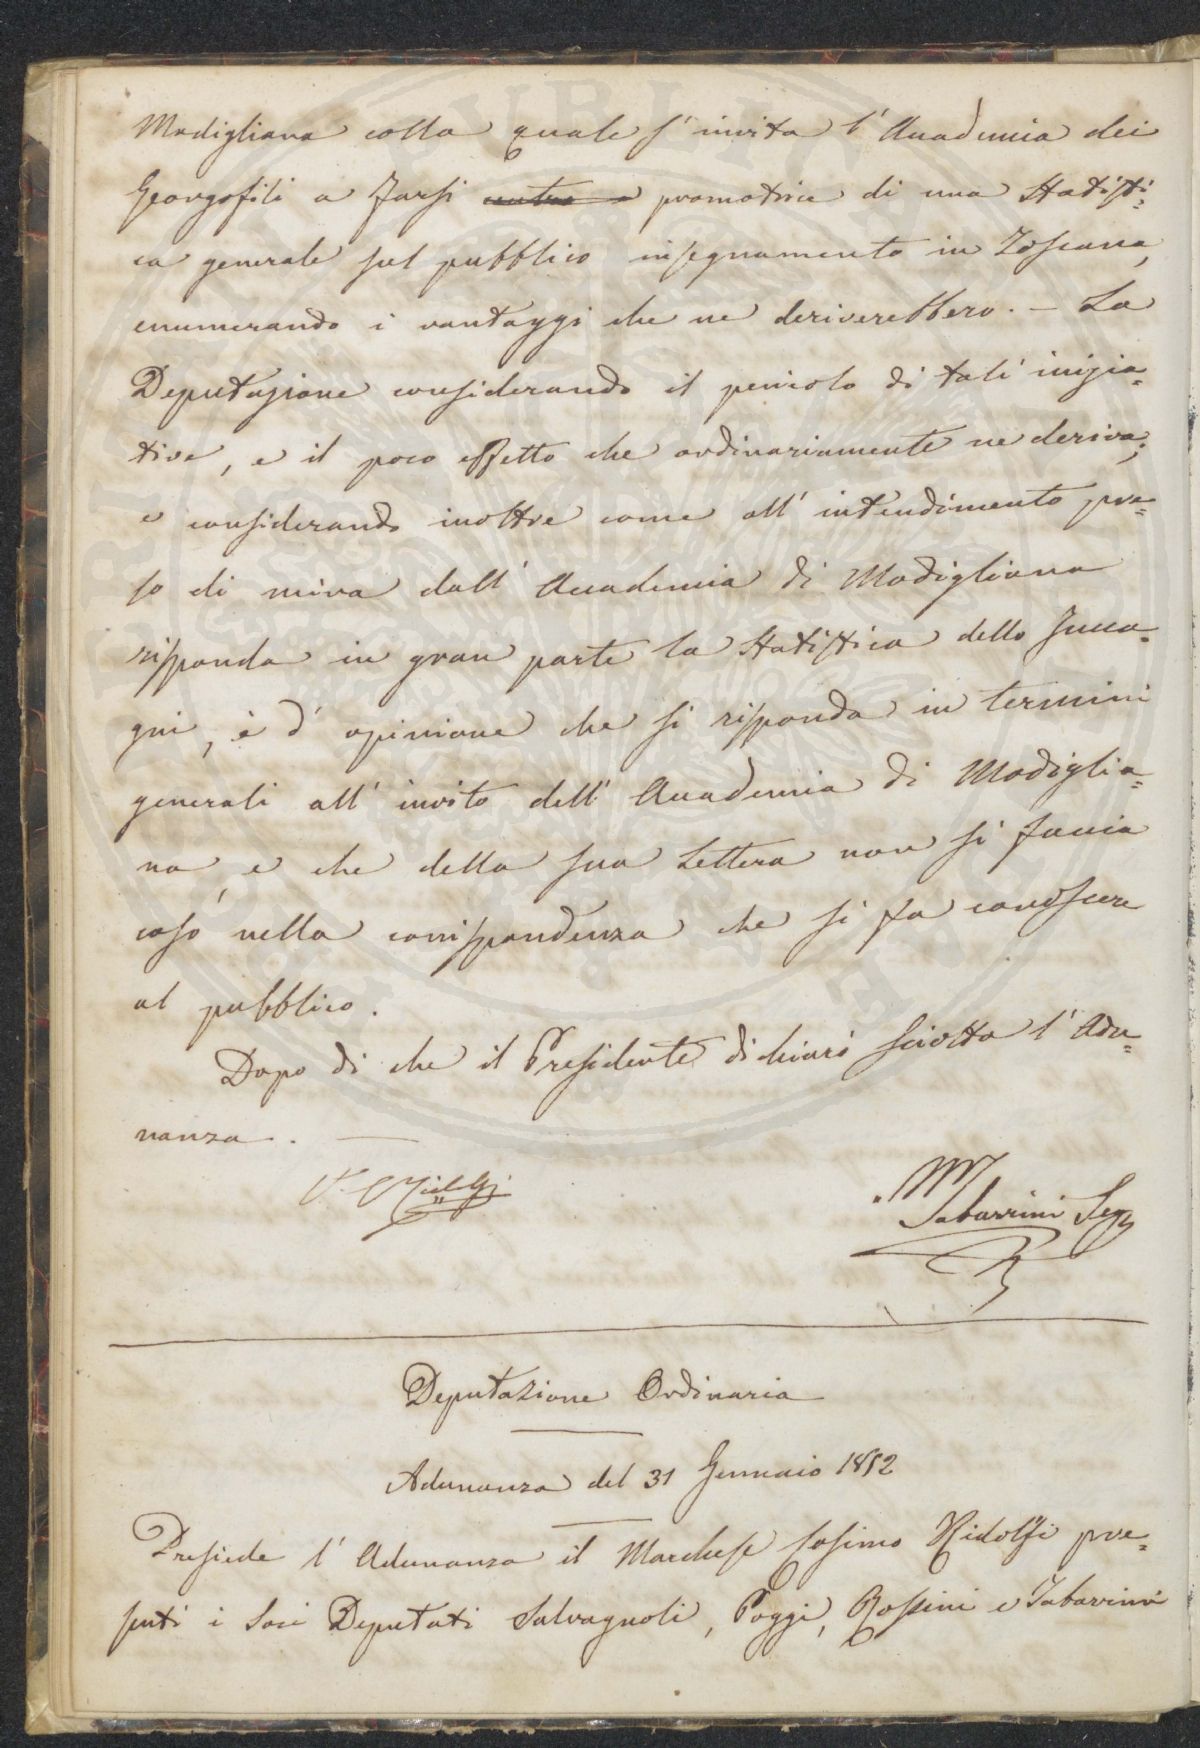 Modigliana colla quale s'invita l'Accademia dei
Georgofili a farsi promotrice di una Statisti=
ca generale sul pubblico insegnamento in Toscana,
enumerando i vantaggi che ne deriverebbero. – La
Deputazione considerando il pericolo di tali inizia=
tive, e il poco effetto che ordinariamente ne deriva;
e considerando inoltre come all'intendimento pre=
so di mira dall'Accademia di Modigliana
risponda in gran parte la Statistica dello Zucca=
gni, è d'opinione che si risponda in termini
generali all'invito dell'Accademia di Modiglia=
na, e che della sua Lettera non si faccia
caso nella corrispondenza che si fa conoscere
al pubblico.
Dopo di che il Presidente dichiarò sciolta l'Adu=
nanza. —
C. Ridolfi
M Tabarrini Seg
Deputazione Ordinaria
Adunanza del 31 Gennaio 1852
Presiede l'Adunanza il Marchese Cosimo Ridolfi pre=
senti i Soci Deputati Salvagnoli, Poggi, Rossini e Tabarrini